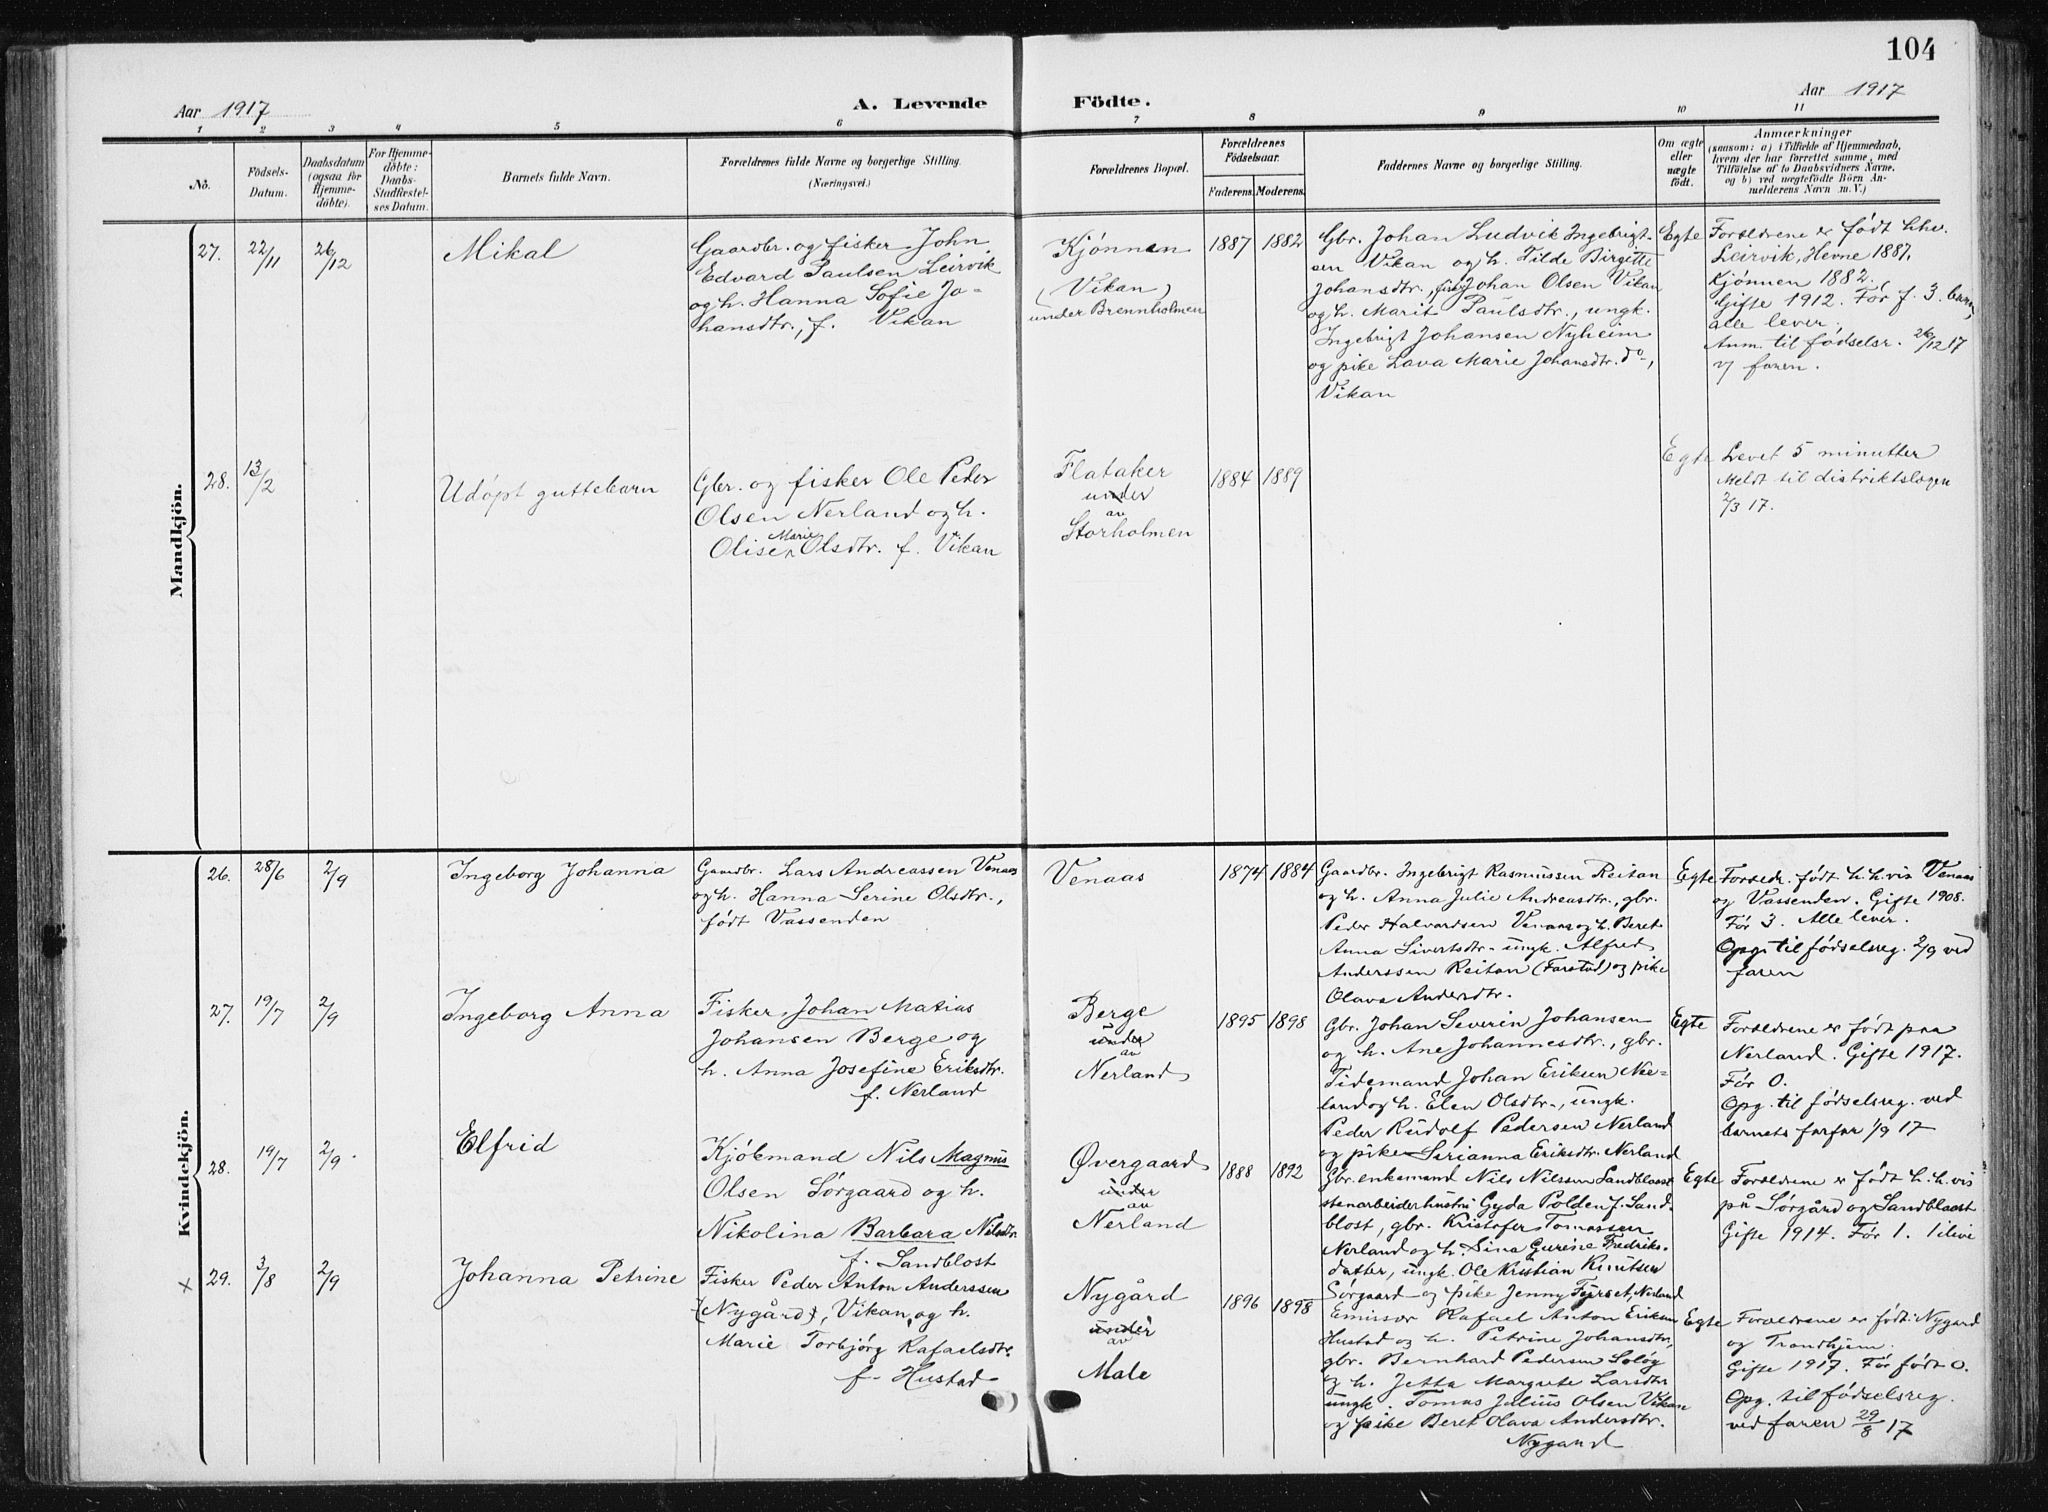 104
Aar 1917
A. Levende
Födte.
Aar 1917
1 2 3 4 5 6 7 8 9 10 11
No.
Födsels-
Datum.
Daabsdatum
(ogsaa for
Hjemme-
döbte).
For Hjemme-
döbte:
Daabs-
Stadfæstel-
ses Datum.
Barnets fulde Navn.
Forældrenes fulde Navne og borgerlige Stilling.
(Næringsvei.)
Forældrenes Bopæl.
Forældrenes
Födselsaar.
Faderens. Moderens.
Faddernes Navne og borgerlige Stilling.
Om ægte
eller
uægte
födt.
Anmærkninger
(saasom: a) i Tilfælde af Hjemmedaab,
hvem der har forrettet samme, med
Tilföielse af to Daabsvidners Navne,
og b) ved uægtefödte Börn An-
melderens Navn m. V.)
Mandkjön.
27.
22/11
26/12
Mikal
Gaardbr. og fisker John
Edvard Paulsen Leirvik
og h. Hanna Sofie Jo-
hansdtr., f. Vikan
Kjønnen
(Vikan)
under Brennholmen
1887 1882
Gbr. Johan Ludvik Ingebrigt-
sen Vikan og h. Tilde Birgitte
Johansdtr., fisk. Johan Olsen Vikan
og h. Marit Paulsdtr., ungk.
Ingebrigt Johansen Nyheim
og pike Lava Marie Johansdtr. do,
Vikan
Egte
Forældrene er født hhv.
Leirvik, Hevne 1887,
Kjønnen 1882.
Gifte 1912. Før f. 3 barn,
alle lever,
Anm. til fødselsr. 26/12 17
v/ faren.
28.
13/2
Udøpt guttebarn
Gbr. og fisker Ole Peder
Olsen Nerland og h.
Marie
Olise Olsdtr. f. Vikan
Flataker
under
av
Storholmen
1884 1889
Egte
Levet 5 minutter
Meldt til distriktslægen
2/3 17.
Kvindekjön.
26.
28/6
2/9
Ingeborg Johanna
Gaardbr. Lars Andreassen Venaas
og h. Hanna Serine Olsdtr.,
født Vassenden
Venaas
1874 1884
Gaardbr. Ingebrigt Rasmussen Reitan
og h. Anna Julie Andreasdtr., gbr.
Peder Halvardsen Venaas og h. Beret
Anna Sivertsdtr. ungk. Alfred
Anderssen Reitan (Farstad) og pike
Olava Andersdtr.
Egte
Forældr. født h.h.vis Venaas
og Vassenden. Gifte 1908.
Før 3. Alle lever.
Opg. til fødselsreg. 2/9 ved
faren
27.
19/7
2/9
Ingeborg Anna
Fisker Johan Matias
Johansen Berge og
h. Anna Josefine Eriksdtr.
f. Nerland
Berge
under
av
Nerland
1895 1898
Gbr. Johan Severin Johansen
og h. Ane Johannesdtr., gbr.
Tidemand Johan Eriksen Ner-
land og h. Elen Olsdtr., ungk.
Peder Rudolf Pedersen Nerland
og pike Sirianna Eriksdtr. Nerland
Egte
Forældrene er født paa
Nerland. Gifte 1917.
Før 0.
Opg. til fødselsreg. ved
barnets farfar 1/9 17
28.
19/7
2/9.
Elfrid
Kjøbmand Nils Magnus
Olsen Sørgaard og h.
Nikolina Barbara Nilsdtr.
f. Sandblost
Øvergaard
under
av
Nerland
1888 1892
Gbr. enkemand Nils Nilssen Sandblost
stenarbeiderhustru Gyda Polden f. Sand-
blost, gbr. Kristofer Tomassen
Nerland og h. Sina Gurine Fredriks-
datter, ungk. Ole Kristian Knutsen
Sørgaard og pike Jenny Nerland
Egte
Forældrene er født h.h.vis
på Sørgård og Sandblaast
Gifte 1914. Før 1. 1 i live
x 29.
3/8
2/9
Johanna Petrine
Fisker Peder Anton Anderssen
(Nygård), Vikan, og h.
Marie Torbjørg Rafaelsdtr.
f. Hustad
Nygård
under
av
Male
1896 1898
Emissær Rafael Anton Eriksen
Hustad og h. Petrine Johansdtr,
gbr. Bernhard Pedersen Soløy
og h. Jetta Margrete Larsdtr
ungk. Tomas Julius Olsen Vikan
og pike Beret Olava Andersdtr.
Nygaard
Egte
Forældrene er født: Nygård
og Trondhjem.
Gifte 1917. Før født 0.
Opg. til fødselsreg.
ved faren 29/8 17